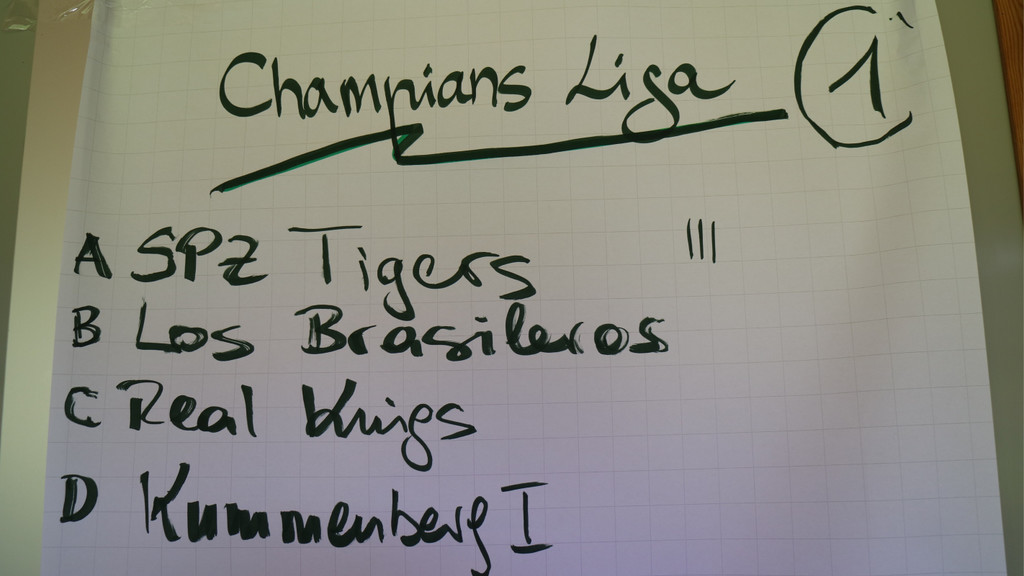 Champians Liga 1
A SPZ Tigers III
B Los Brasileros
C Real Kings
D Kummenberg I